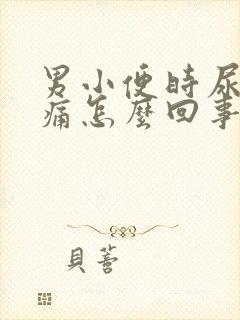 男小便時尿
痛怎麼回事
貝蒼